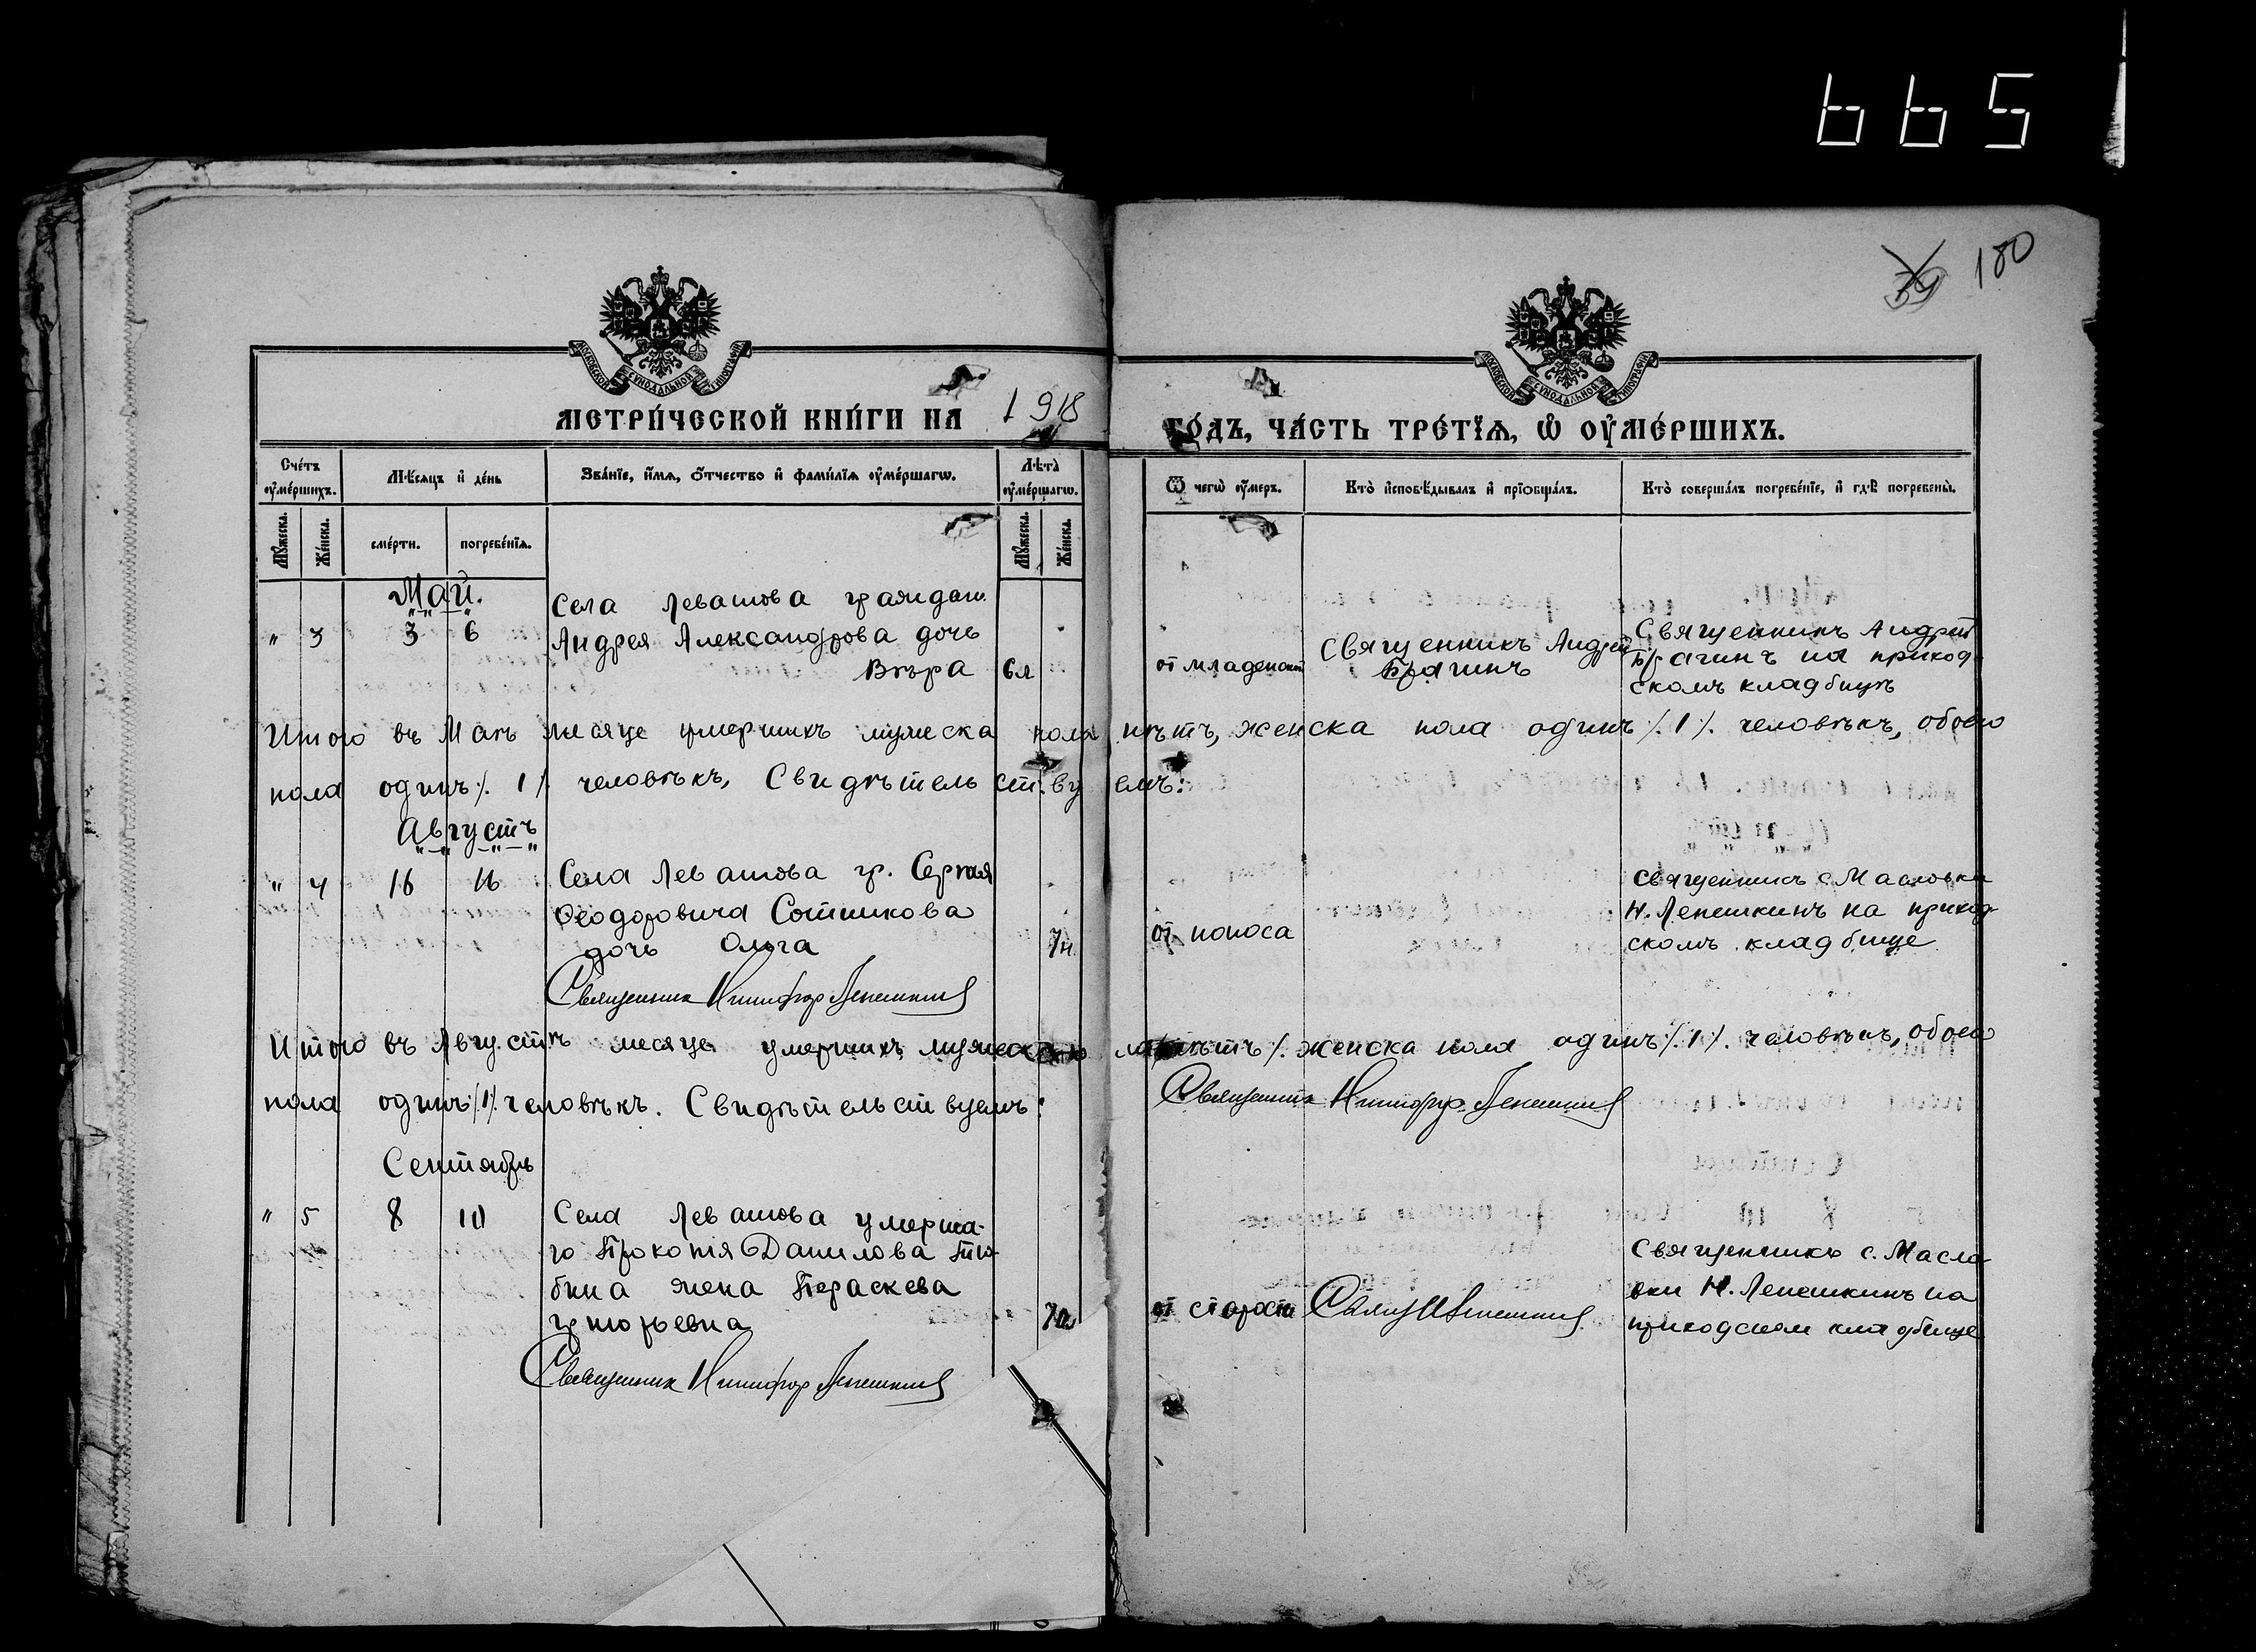 665
39 180
МОСКОВСКОЙ СѴНОДАЛЬНОЙ ТИПОГРАФІИ
МОСКОВСКОЙ СѴНОДАЛЬНОЙ ТИПОГРАФІИ
МЕТРИ́ЧЕСКОЙ КНИ́ГИ НА 1918 ГО́ДЪ, ЧА́СТЬ ТРЕ́ТЇѦ, Ѡ҆ ОУ҆МЕ́РШИХЪ.
Сче́тъ оу҆ме́ршихъ.
Мѣ́сяцъ и҆ де́нь
Зва́нїе, и҆́мѧ, ѻ҆́тчество и҆ фами́лїѧ оу҆ме́ршагѡ.
Лѣ́та̀ оу҆ме́ршагѡ.
Ѿ чегѡ̀ оу҆́меръ.
Кто̀ и҆сповѣ́дывалъ и҆ прїобща́лъ.
Кто̀ соверша́лъ погребе́нїе, и҆ гдѣ̀ погребены̀.
Мꙋ́жеска. Же́нска.
сме́рти. погребе́нїя.
Мꙋ́жеска. Же́нска.
Май.
" 3 3 6
Села Левашова граждан.
Андрея Александрова дочь
Вѣра 6л
от младенч
Священникъ Андрей
Брагинъ
Священникъ Андрей
Брагинъ на приход-
скомъ кладбищѣ
Итого въ Маѣ месяце умершихъ мужеска пола нѣтъ, женска пола одинъ ./. 1 ./. человѣкъ, обоего
пола одинъ ./. 1 ./. человѣкъ, Свидѣтельствуемъ:
Августъ
" 4 16 16
Села Левашова гр. Сергѣя
Ѳеодоровича Сотникова
дочь Ольга 7н.
от поноса
священникъ с. Масловки
Н. Лепешкинъ на приход-
скомъ кладбище
Священник Никифор Лепешкин
Итого въ Августѣ месяце умершихъ мужеска нѣтъ ./. женска пола одинъ ./. 1 ./. человѣкъ, обоего
пола одинъ ./. 1 ./. человѣкъ. Свидѣтельствуемъ:
Священник Никифор Лепешкин
Сентябрь
" 5 8 10
Села Левашова умерша-
го Прокопія Данилова Тю-
бина жена Параскева
Григорьевна 70л
от старости
Свящ. Н Лепешкин
Священникъ с. Масло-
вки Н. Лепешкинъ на
приходском кладбище
Священник Никифор Лепешкин